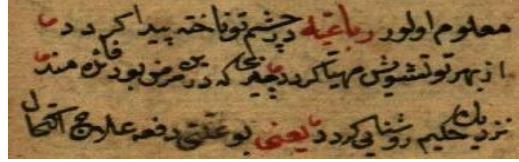 معلوم اولور رباعیه در چشم تو ناخنه پیدا کردد
از بهر تو تشویش مهیا کردد چیزی که درین مرض بود فائده مند
نزدیك حکیم روشنایی کردد یعنی بو علتی دفعه علاج اکتحال